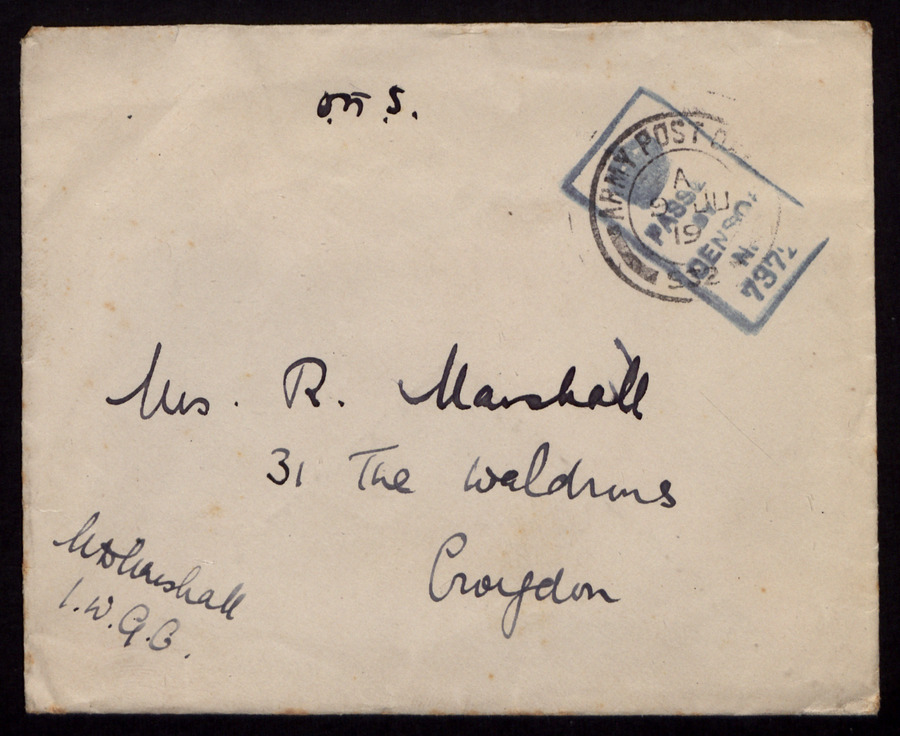 on S.
ARMY POST
A
9 JU
19
PASS
BY
CENSOR
No
7372
Mrs. R. Marshall
31 The Waldrons
Croydon
Marshall
I.W.G.C.